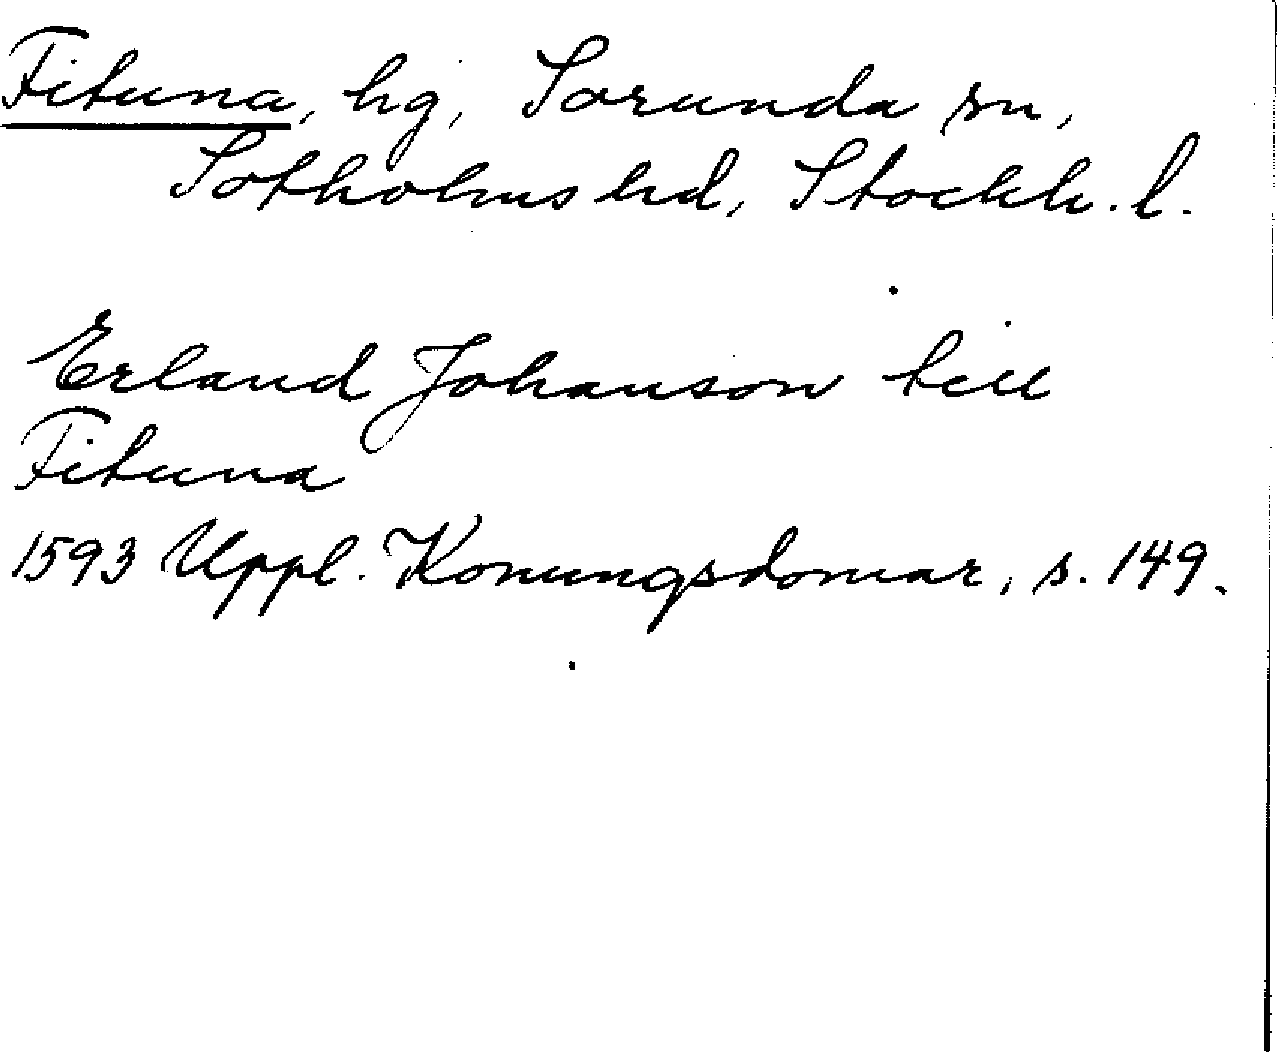 Fituna, hg, Sorunda sn,
Sotholms hd, Stockh. l.
Erland Johanson till
Fituna
1593 Uppl. Konungsdomar, s. 149.